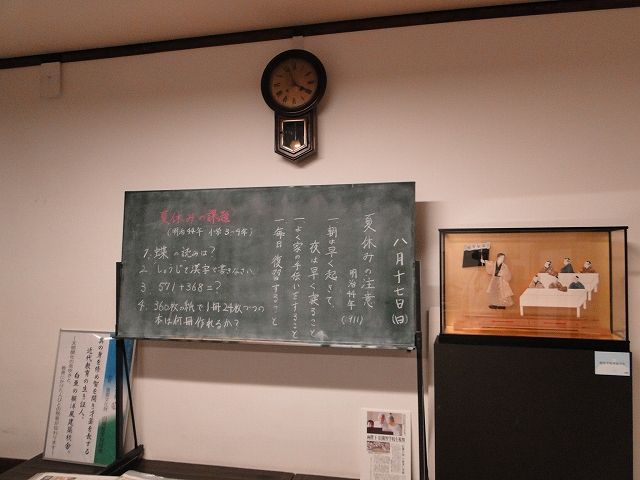 八月十七日(日)
夏休みの注意
明治44年(1911)
一、朝は早く起きて、
夜は早く寝ること
一、よく家の手伝いをすること
一、毎日復習すること
夏休みの課題
(明治44年 小学3~4年)
1. 蝶の読みは?
2. しょうじを漢字で書きなさい
3. 571+368=?
4. 360枚の紙で1冊24枚つづの
本は何冊作れるか?
近代教育の生き証人、
白亜の擬洋風建築校舎。